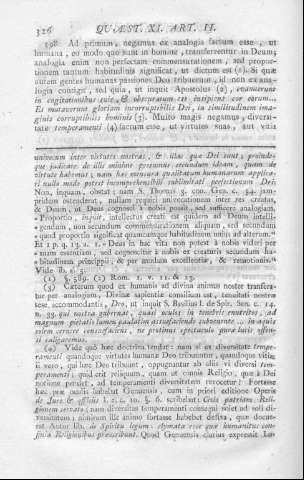 326 QUÆST. XI. ART. II.
198. Ad primum, negamus ex analogia factum esse, ut
humana, eo modo quo sunt in homine, transferrentur in Deum;
analogia enim non perfectam commensurationem, sed propor-
tionem tantum habitudinis significat, ut dictum est (1). Si quæ
autem gentes humanas passiones Deo tribuerunt, id non ex ana-
logia contigit, sed quia, ut inquit Apostolus (2), evanuerunt
in cogitationibus suis, & obscuratum est insipiens cor eorum...
Et mutaverunt gloriam incorruptibilis Dei, in similitudinem ima-
ginis corruptibilis hominis (3). Multo magis negamus, diversi-
tate temperamenti (4) factum esse, ut virtutes suas, aut vitia
univocum inter virtutes nostras, & illas quæ Dei sunt,
que judicare de illis minime possemus secundum ideam, quam de
virtute habemus; nam hæc mensura qualitatum humanarum applica-
ri nullo modo potest incomprehensibili sublimitati perfectionum Dei.
Non, inquam, obstat; nam S. Thomas 3. con. Gen. c. 54. jam-
pridem ostenderat, nullam requiri univocationem inter res creatas,
& Deum, ut Deus cognosci a nobis possit, sed sufficere analogiam.
« Proportio, inquit, intellectus creati est quidem ad Deum intelli-
« gendum, non secundum commensurationem aliquam, sed secundum
« quod proportio significat quamcumque habitudinem unius ad alterum. »
Et 1 p. q. 13. a. 1. « Deus in hac vita non potest a nobis videri per
« suam essentiam, sed cognoscitur a nobis ex creaturis secundum ha-
« bitudinem principii, & per modum excellentiæ, & remotionis. »
Vide ib. a. 5.
(1) §. 389. (2) Rom. 1. v. 21. & 23.
(3) Cæterum quod ex humanis ad divina animus noster transfera-
tur per analogiam, Divinæ sapientiæ consilium est, tenuitati nostræ
sese accommodantis, Deo, ut inquit S. Basilius l. de Spir. San. c. 14.
n. 33. qui nostra gubernat, quasi oculos in tenebris enutritos, ad
magnum veritatis lumen paulatim assuefaciendo subvecante ... in aquis
solem cernere consuefaciens, ne protinus spectaculo puræ lucis offen-
si caligaremus.
(4) Vide quo hæc doctrina tendat: nam si ex diversitate tempe-
ramenti quandoque virtutes humanæ Deo tribuuntur, quandoque vitia;
si vero, qui hæc Deo tribuunt, opinantur ab aliis vi diversi tem-
peramenti; quid erit reliquum, quam ut omnis Religio, quæ a Dei
notione pendet, ad temperamenti diversitatem revocetur? Fortasse
hæc præ oculis habebat Genuensis, cum in priori editione Operis
de Jure & officiis l. 1. c. 10. §. 6. scribebat: Civis patriam Reli-
gionem servato; nam diversitas temperamenti consequi solet ad soli di-
versitatem; nimirum ille animo fortasse habebat defixa, quæ docue-
rat Autor lib. de Spiritu legum: climata esse quæ humanitus con-
finia Religionibus præscribunt. Quod Genuensis clarius expressit La-